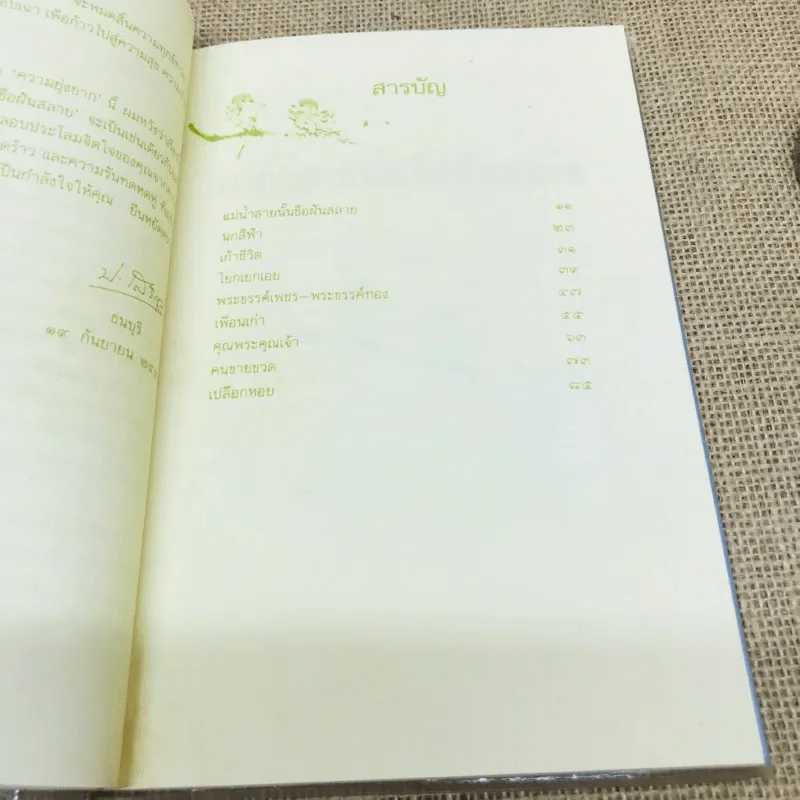 จะหมดสิ้นความทุกข์
เพื่อก้าวไปสู่ความสุข
'ความยุ่งยาก' นี้ ผมหวังว่า
ชื่อฝันสลาย' จะเป็นเช่นเดียวกัน
ปลอบประโลมจิตใจของคุณจาก
และความรันทดหดหู่
เป็นกำลังใจให้คุณ ยืนหยัด
ธนบุรี
๑๙ กันยายน
สารบัญ
แม่น้ำสายนั้นชื่อฝันสลาย ๑๑
นกสีฟ้า ๒๓
เก้าชีวิต ๓๑
โยกเยกเอย ๓๙
พระขรรค์เพชร—พระขรรค์ทอง ๔๗
เพื่อนเก่า ๕๕
คุณพระคุณเจ้า ๖๓
คนขายขวด ๗๓
เปลือกหอย ๘๕